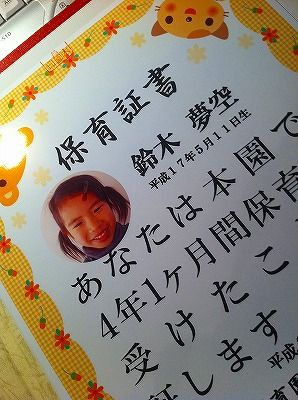 保育証書
鈴木 夢空
平成17年5月11日生
あなたは本園で
4年1ヶ月間保育
受けたこ
証します
平成
育園